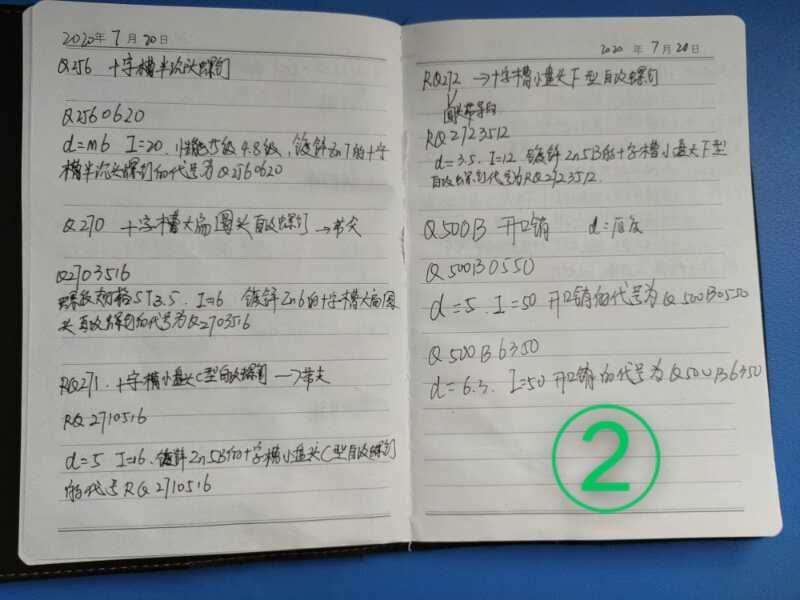 2020年7月20日
Q256 十字槽半沉头螺钉
Q2560620
d=m6 I=20. 性能等级4.8级, 镀锌Zn7的十字
槽半沉头螺钉的代号为Q2560620
Q270 十字槽大扁圆头自攻螺钉→带尖
Q2703516
螺纹规格ST3.5. I=16 镀锌Zn6的十字槽大扁圆
头自攻螺钉的代号为Q2703516
RQ271. 十字槽小盘头C型自攻螺钉→带尖
RQ2710516
d=5 I=16. 镀锌Zn5B的十字槽小盘头C型自攻螺钉
的代号RQ2710516
2020年7月20日
RQ272 →十字槽小盘头F型自攻螺钉
RQ2723512
d=3.5. I=12 镀锌Zn5B的十字槽小盘头F型
自攻螺钉代号为RQ2723512.
Q500B 开口销 d=
Q500B0550
d=5. I=50 开口销的代号为Q500B0550
Q500B6350
d=6.3. I=50 开口销的代号为Q500B6350
2